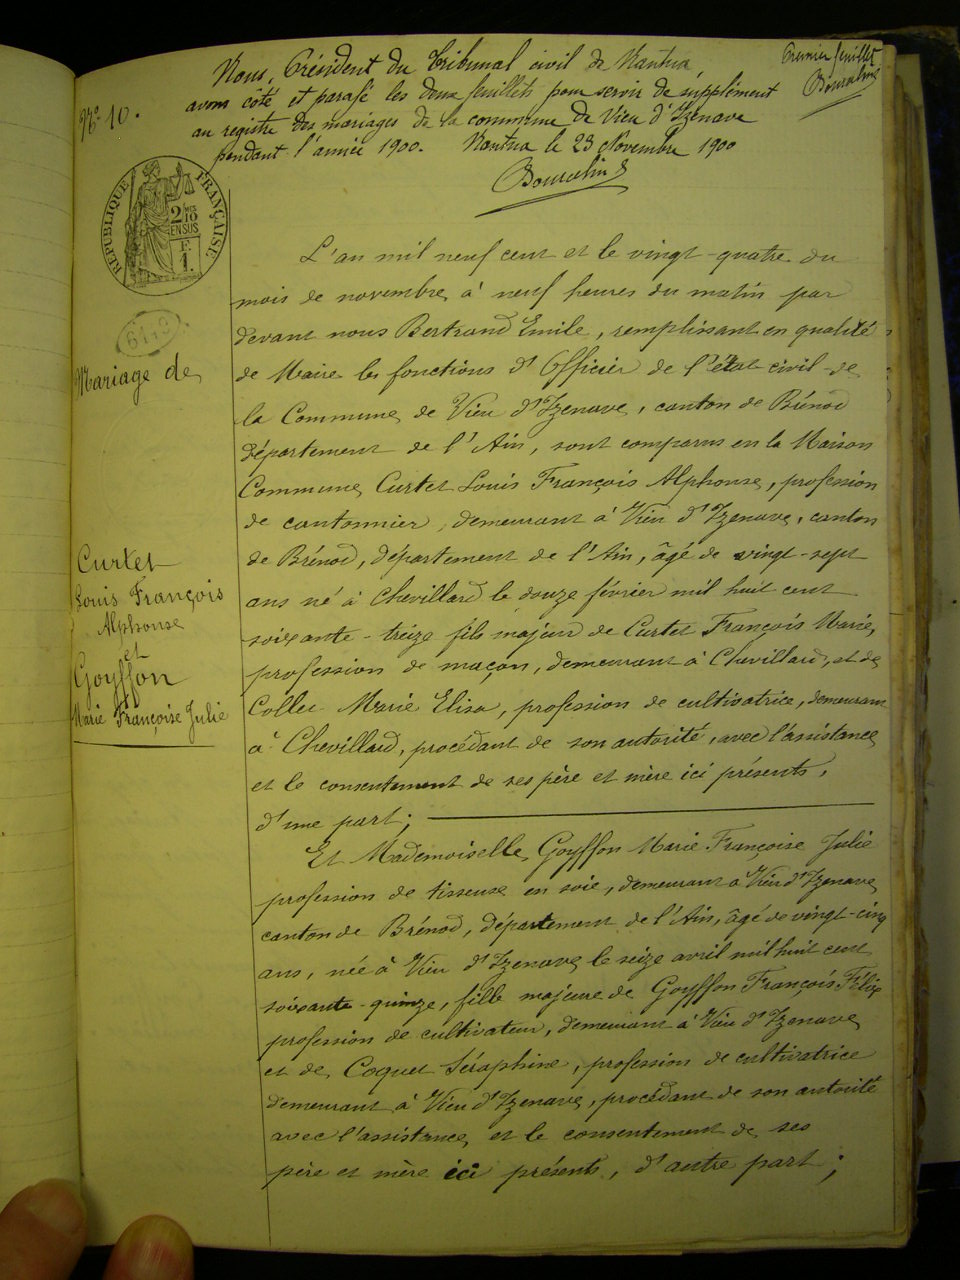 Premier feuillet
Nous, Président du Tribunal civil de Nantua,
avons côté et parafé les deux feuillets pour servir de supplément
au registre des mariages de la commune de Vieu d'Izenave
pendant l'année 1900. Nantua le 23 Novembre 1900
No 10.
RÉPUBLIQUE FRANÇAISE
2/10
EN SUS
F.
1.
Mariage de
Curtet
Louis François
Alphonse
et
Goyffon
Marie Françoise Julie
L'an mil neuf cent et le vingt-quatre du
mois de novembre à neuf heures du matin par
devant nous Bertrand Emile, remplissant en qualité
de Maire les fonctions d'Officier de l'état civil de
la Commune de Vieu d'Izenave, canton de Brénod
département de l'Ain, sont comparus en la Maison
Commune Curtet Louis François Alphonse, profession
de cantonnier, demeurant à Vieu d'Izenave, canton
de Brénod, département de l'Ain, âgé de vingt-sept
ans né à Chevillard le douze février mil huit cent
soixante-treize fils majeur de Curtet François Marie,
profession de maçon, demeurant à Chevillard, et de
Collet Marie Elisa, profession de cultivatrice, demeurant
à Chevillard, procédant de son autorité, avec l'assistance
et le consentement de ses père et mère ici présents,
d'une part;
Et Mademoiselle Goyffon Marie Françoise Julie
profession de tisseuse en soie, demeurant à Vieu d'Izenave
canton de Brénod, département de l'Ain, âgé de vingt-cinq
ans, née à Vieu d'Izenave le seize avril mil huit cent
soixante-quinze, fille majeure de Goyffon François Félix
profession de cultivateur, demeurant à Vieu d'Izenave
et de Coquet Séraphine, profession de cultivatrice
demeurant à Vieu d'Izenave, procédant de son autorité
avec l'assistance et le consentement de ses
père et mère ici présents, d'autre part;